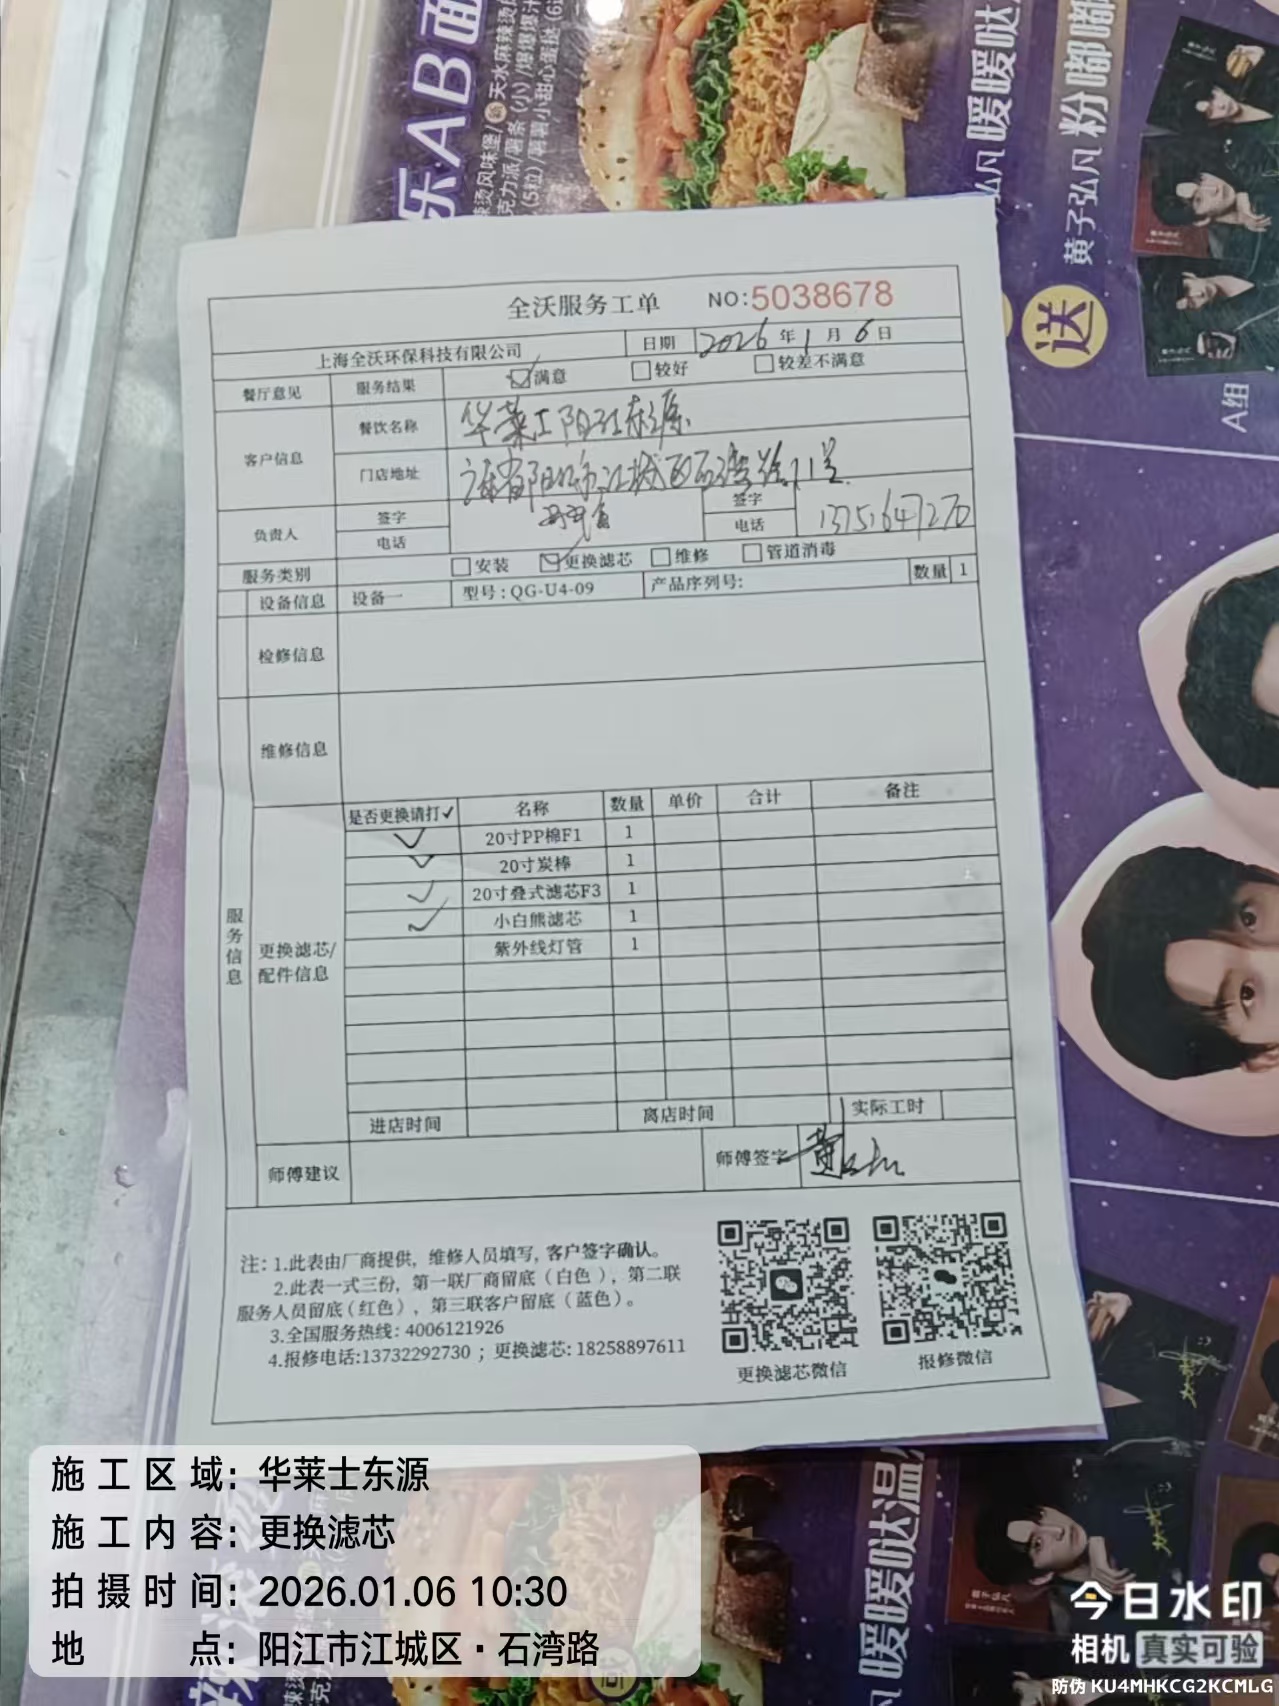 乐AB面
天水麻辣烫
辣烫风味堡/
克力派/薯条(小)/爆爆爆汁
(5粒)/薯薯小甜心蛋挞(6
弘凡暖暖暖哒
黄子弘凡粉嘟嘟
送
A组
全沃服务工单 NO:5038678
上海全沃环保科技有限公司 日期 2026年1月6日
餐厅意见 服务结果 满意 较好 较差不满意
客户信息 餐饮名称 华莱士阳江东源
门店地址 阳江市江城区石湾路11号
负责人 签字 签字
电话 电话 13751647270
服务类别 安装 更换滤芯 维修 管道消毒
设备信息 设备一 型号:QG-U4-09 产品序列号: 数量 1
检修信息
维修信息
服务信息
更换滤芯/配件信息
是否更换请打✓ 名称 数量 单价 合计 备注
✓ 20寸PP棉F1 1
✓ 20寸炭棒 1
✓ 20寸叠式滤芯F3 1
✓ 小白熊滤芯 1
紫外线灯管 1
进店时间 离店时间 实际工时
师傅建议 师傅签字
注:1.此表由厂商提供,维修人员填写,客户签字确认。
2.此表一式三份,第一联厂商留底(白色),第二联
服务人员留底(红色),第三联客户留底(蓝色)。
3.全国服务热线:4006121926
4.报修电话:13732292730;更换滤芯:18258897611
更换滤芯微信 报修微信
暖哒温
施工区域:华莱士东源
施工内容:更换滤芯
拍摄时间:2026.01.06 10:30
地点:阳江市江城区·石湾路
今日水印
相机 真实可验
防伪 KU4MHKCG2KCMLG